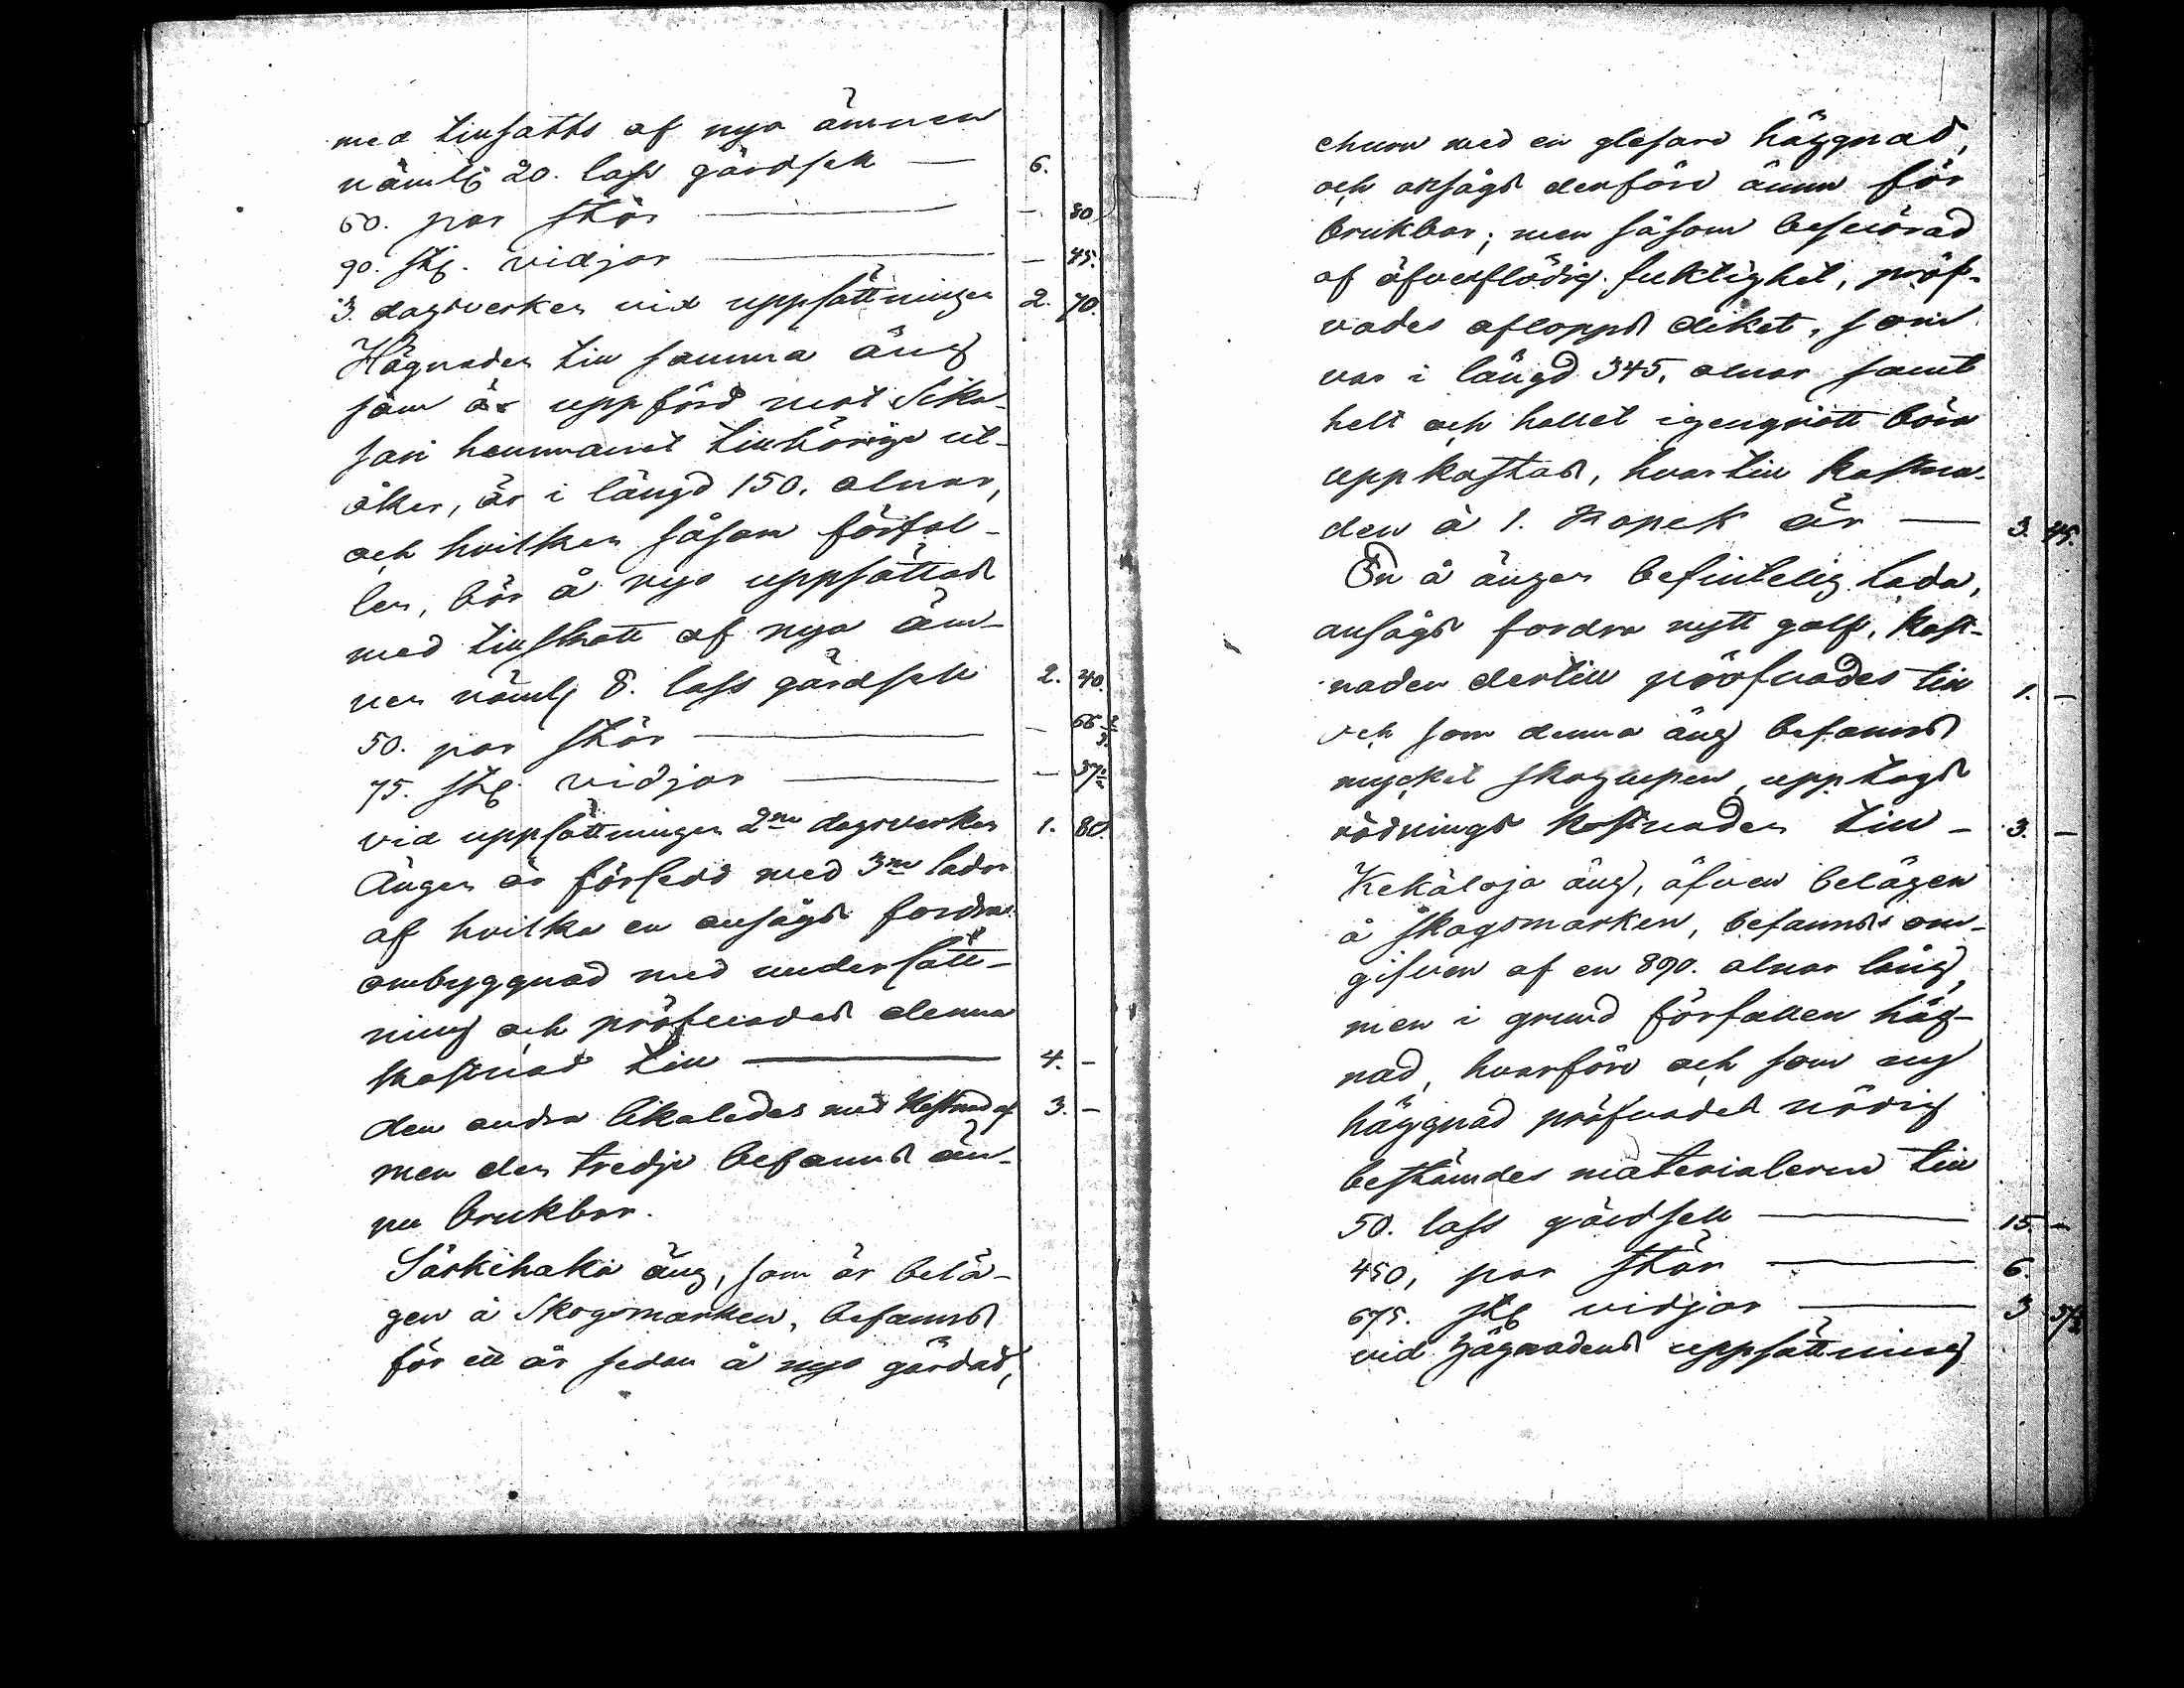 med tillsatts af nya ämnen
näml. 20. lass gärdsell — 6.
60. par stör — — 80.
90. st. vidjor — — 45.
3. dagsverken vid uppsättningen 2. 70.
Hägnaden till samma äng
som är uppförd mot Sika-
sari hemmanet tillhörige ut-
åker, är i längd 150. alnar,
och hvilken såsom förfal-
len, bör å nyo uppsättas
med tillskott af nya äm-
nen näml. 8. lass gärdsell 2. 40.
50. par stör — — 66 2/3.
75. st. vidjor — — 37 1/2
vid uppsättningen 2ne dagsverken 1. 80.
Ängen är försedd med 3ne lador
af hvilka en ansågs fordra
ombyggnad med undersätt-
ning och pröfvades denna
kostnad till — 4. –
den andra likaledes med kostnad af 3. –
men den tredje befanns än-
nu brukbar.
Särkihaka äng, som är belä-
gen å Skogsmarken, befanns
för ett år sedan å nyo gärdad,
ehuru med en glesare häggnad,
och ansågs derföre ännu för
brukbar; men såsom besvärad
af öfverflödig fuktighet, pröf-
vades aflopps diket, som
var i längd 345. alnar samt
helt och hållet igengrott böra
uppkastas, hvartill kostna-
den à 1. Kopek är — 3. 45.
En å ängen befintelig lada,
ansågs fordra nytt golf, kost-
naden dertill pröfvades till 1. –
och som denna äng befanns
mycket skogvepen, upptogs
rödnings kostnaden till – 3. –
Kekäloja äng, äfven belägen
å skogsmarken, befanns om-
gifven af en 890. alnar lång,
men i grund förfallen häg-
nad, hvarföre och som ny
häggnad pröfvades nödig
bestämdes materialerne till
50. lass gärdsell — 15. –
450, par stör — 6.
675. st. vidjor — 3 37 1/2
vid hägnadens uppsättning